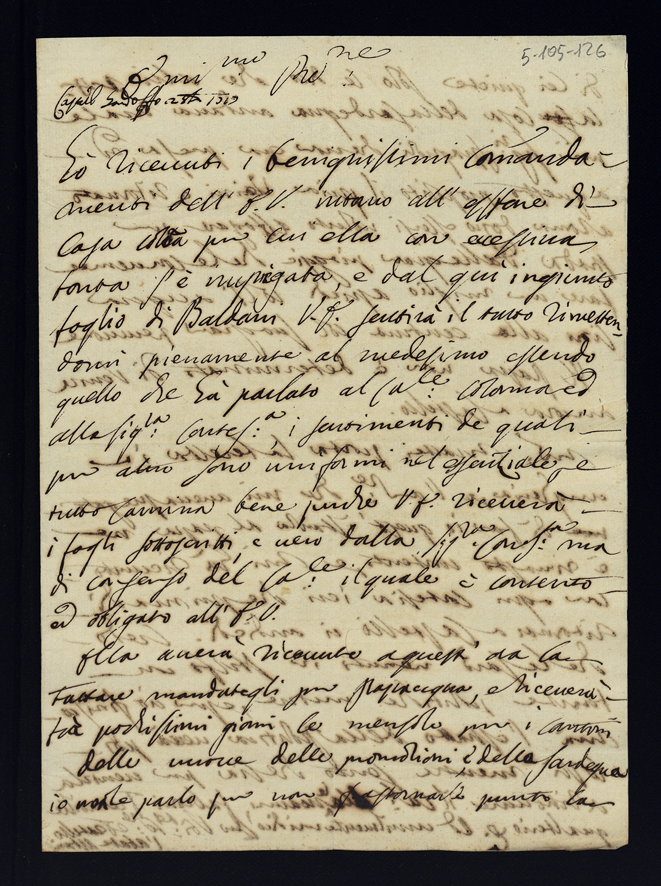 5-105-126
Em.mo Pre.ne
Castel Gandolfo
Hò riceuuti i benignissimi Comanda-
menti dell' E. V. intorno all' affare di
Casa per cui ella con eccessiua
bontà s' è impiegata, e dal qui ingiunto
foglio di Baldani V. E. sentirà il tutto rimetten-
domi pienamente al medesimo essendo
quello che hà parlato al Ca.le Colonna ed
alla sig.ra Contes.a i sentimenti de quali
per altro sono uniformi nel essentiale, e
tutto camina bene perche V. E. riceuerà
i fogli sottoscritti, e uero dalla Sig.ra Con.sa ma
di consenso del Ca.le il quale è contento
ed obligato all' E. V.
Ella auerà riceuuto aquest' ora la
mandategli per e riceuerà
frà pochissimi giorni le mensole per i
delle nuoue delle promotioni e della Sardegna
io non le parlo per non frastornarle punto la